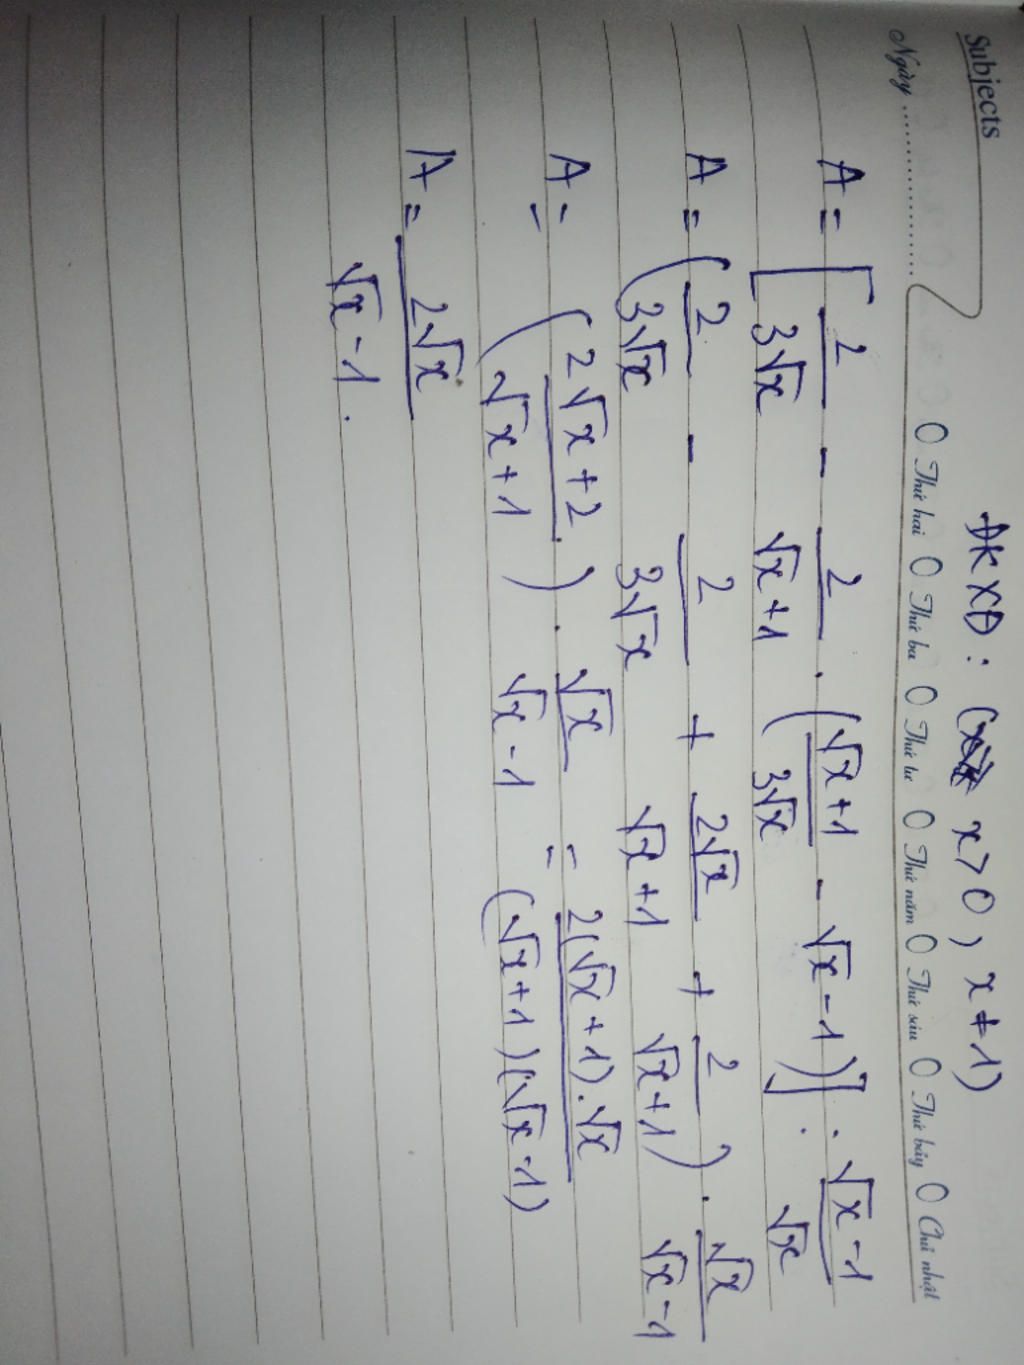 Subjects
ĐKXĐ: ( x > 0, x ≠ 1)
Ngày ............... O Thứ hai O Thứ ba O Thứ tư O Thứ năm O Thứ sáu O Thứ bảy O Chủ nhật
A = [ 2/(3√x) - 2/(√x+1) . ( (√x+1)/(3√x) - √x - 1 ) ] : (√x-1)/√x
A = ( 2/(3√x) - 2/(3√x) + 2√x/(√x+1) + 2/(√x+1) ) . √x/(√x-1)
A = ( (2√x+2)/(√x+1) ) . √x/(√x-1) = 2(√x+1).√x/((√x+1)(√x-1))
A = 2√x/(√x-1).